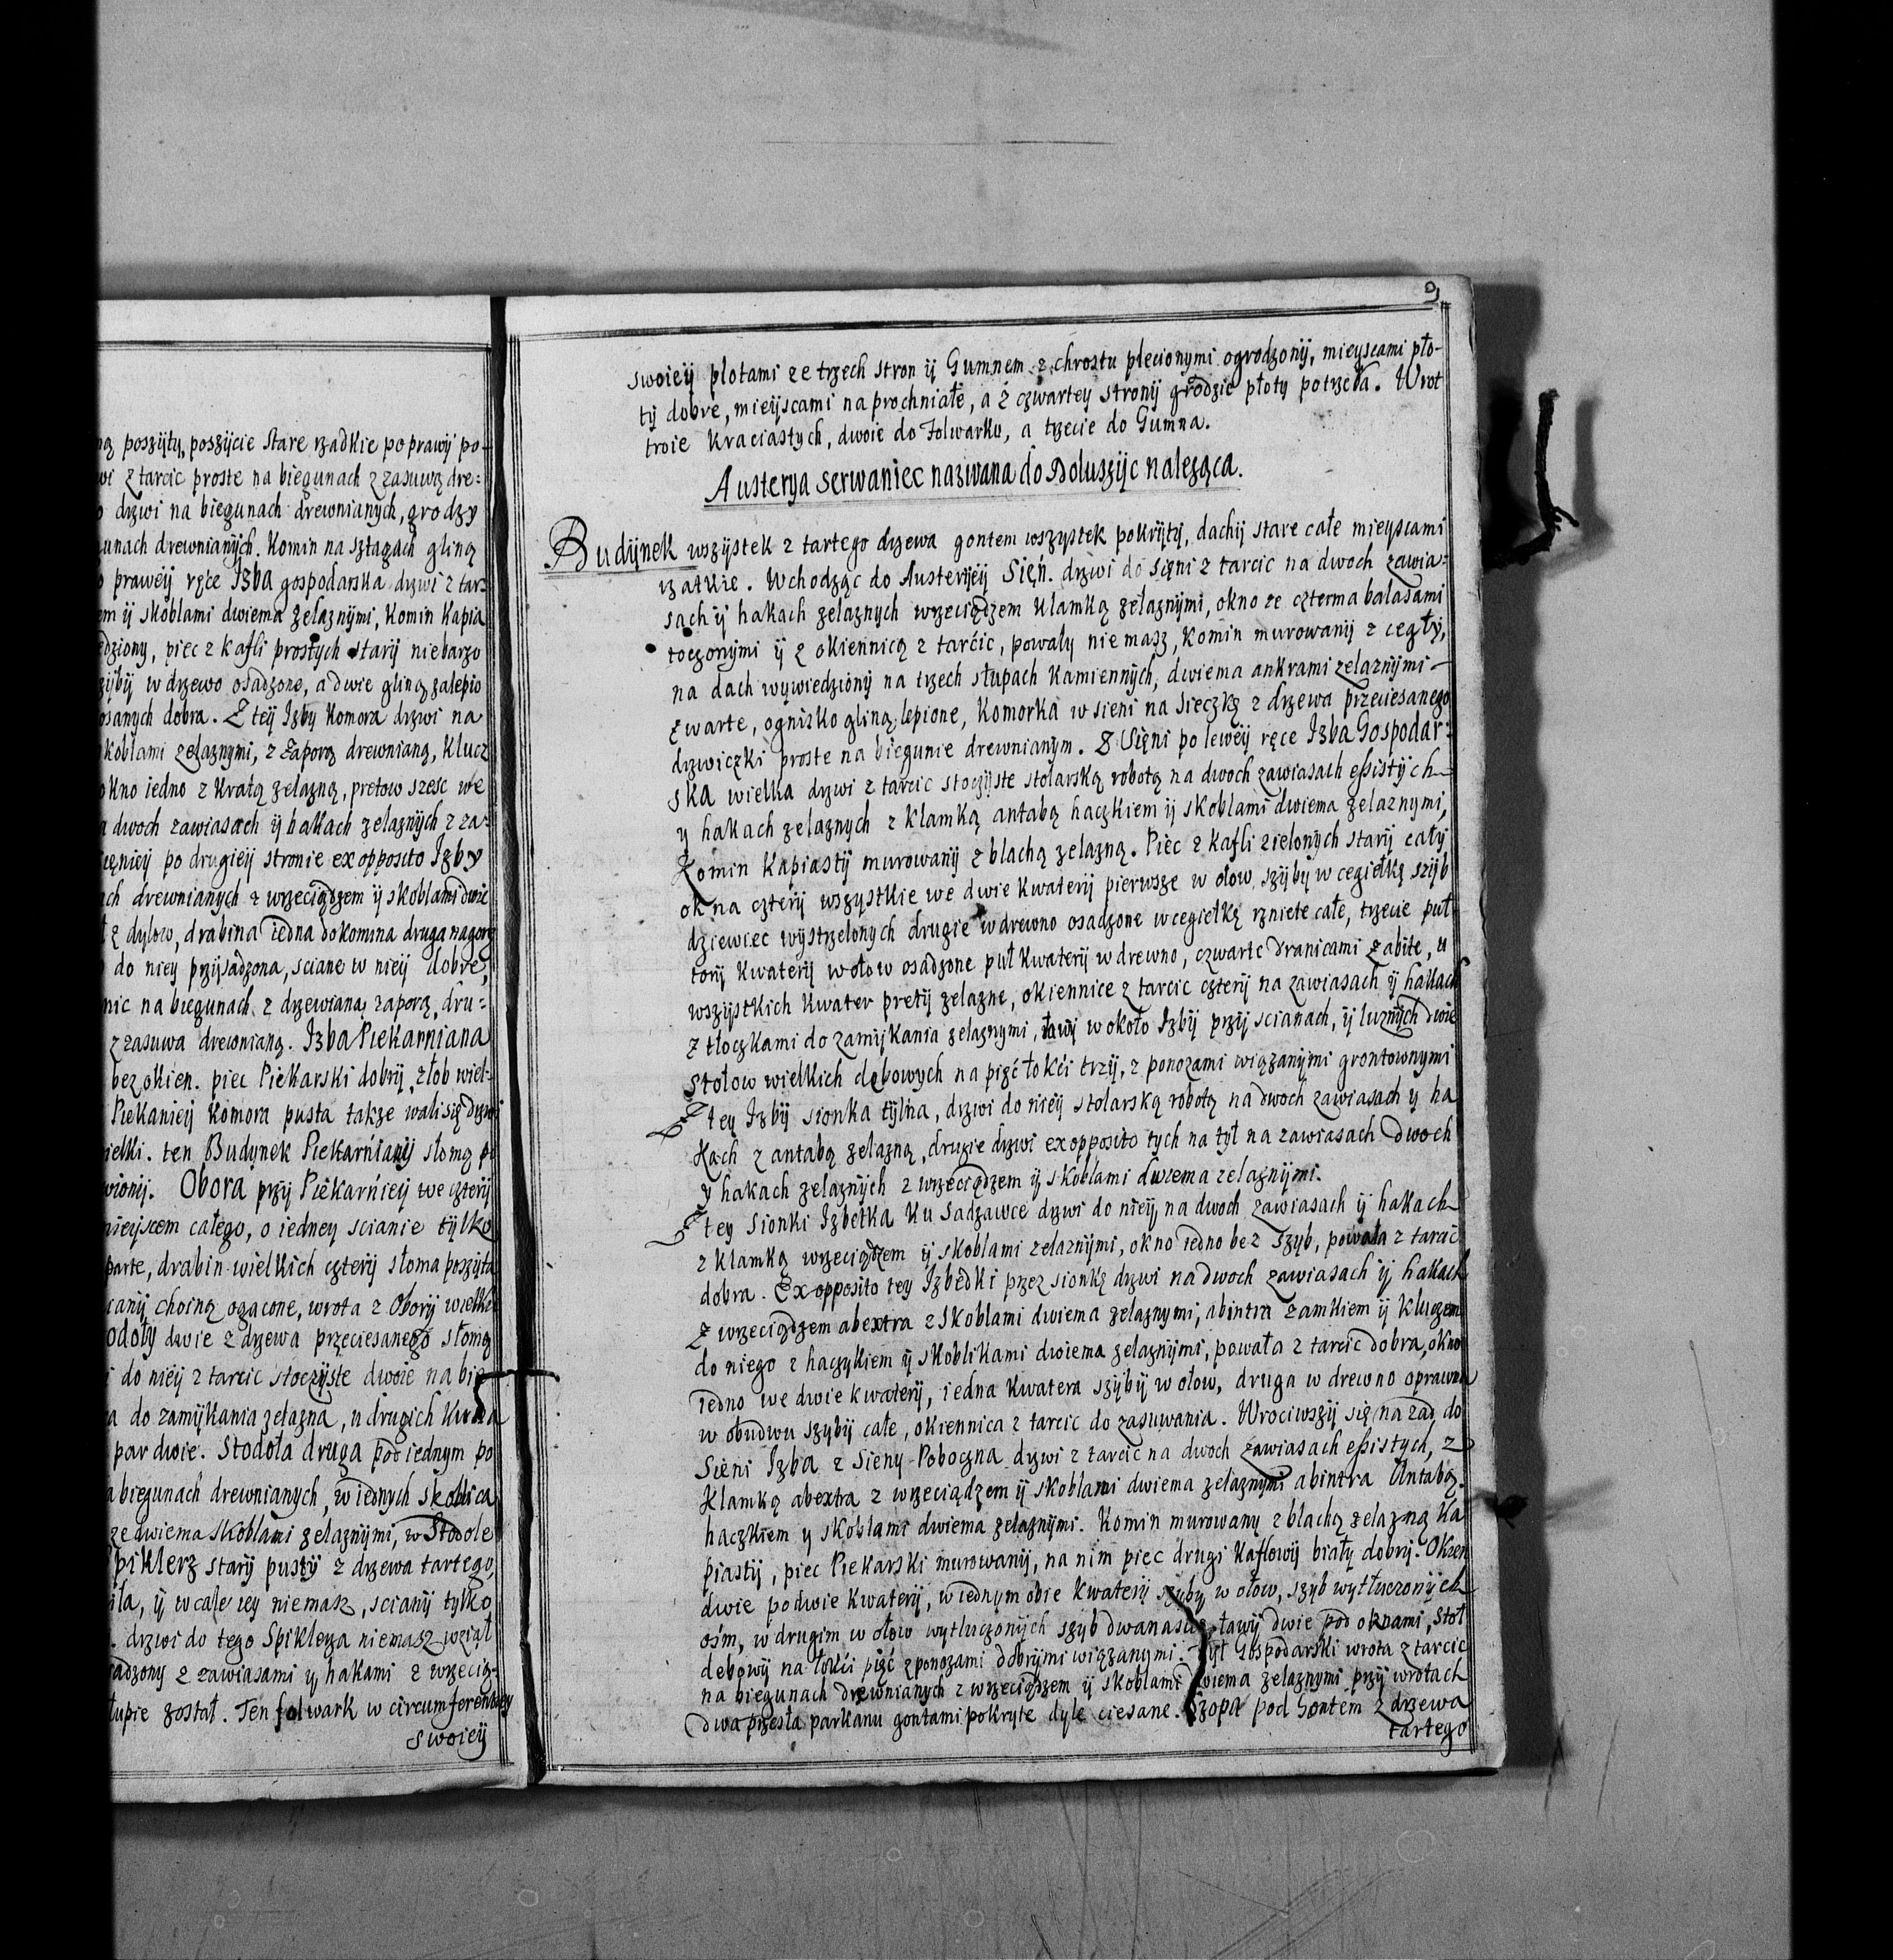 ną poszyty, poszijcie stare rzadkie poprawij po-
wi z tarcic proste na biegunach z zasuwą dre:
drzwi na biegunach drewnianych, grodzy
unach drewnianijch. Komin na sztagach gliną
prawéij ręce Izba gospodarska drzwi z tar-
em ij skoblami dwiema zelaznijmi, Komin Kapia
dziony, piec z kafli prostych starij niebarzo
zijbij w drzewo osadzone, a dwie gliną zalepio
osanych dobra. Z teij Izby Komora drzwi na
skoblami zelaznymi, z zaporą drewnianą, klucz
okno iedno z kratą zelazną, pretow szesc we
a dwoch zawiasach ij hakach zelaznijch z za-
sięnieij po drugieij stronie ex opposito Izby
ach drewnianych z wrzeciądzem ij skoblami dwie
z dylow, drabina iedna do komina druga na gorę
do niey przijsadzona, sciane w nieij dobre,
nic na biegunach z drzewianą zaporą, dru-
z zasuwa drewnianą. Izba Piekarniana
bez okien. piec Piekarski dobrij, złob wiel-
Piekanieij Komora pusta takze wali się drzwi
ielki. ten Budynek Piekarńianij słomą po
wionij. Obora przij Piekarńieij we czterij
mieijscem całego, o iedney scianie tijlko
parte, drabin wielkich czterij słoma poszyta
cianij choiną ogacone, wrota z Oborij wielkie
odoły dwie z drzewa przeciesanego słomą
do nieij z tarcic stoczijste dwoie na bie
a do zamijkania zelazna, u drugich Kuna
par dwie. Stodoła druga pod iednym po
a biegunach drewnianych, w iednych skoblica
ze dwiema skoblami zelaznijmi, w Stodole
Spiklerz starij pustij z drzewa tartego,
iła, ij w cale iey niemasz, scianij tylko
drzwi do tego Spiklerza niemasz wziął
adzony z zawiasami y hakami z wrzecią-
łupie został. Ten folwark w circumferencyey
swoieij
9
swoieij płotami ze trzech stron ij Gumnem z chrostu plecionymi ogrodzonij, mieyscami pło-
tij dobre, mieijscami naprochniałe, a z czwartey stronij grodzie płoty potrzeba. Wrot
troie Kraciastych, dwoie do Folwarku, a trzecie do Gumna.
Austerya serwaniec nazwana do Boluszijc naleząca.
Budijnek wszijstek z tartego drzewa gontem wszystek pokrijtij, dachij stare całe mieyscami
rzatkie. Wchodząc do Austerijeij Sięń. drzwi do sięni z tarcic na dwoch zawia-
sach ij hakach zelaznych wrzeciądzem klamką zelaznijmi, okno ze czterma balasami
toczonijmi ij z okiennicą z tarcic, powały nie masz, komin murowanij z cegły,
na dach wywiedzionij na trzech słupach Kamiennych, dwiema ankrami zelaznijmi-
zwarte, ognisko gliną lepione, Komorka w sieni na sieczkę z drzewa przeciesanego
drzwiczki proste na biegunie drewnianym. Z Sięni po leweij ręce Izba Gospodar:
ska wielka drzwi z tarcic stoczijste stolarską robotą na dwoch zawiasach essistijch
y hakach zelaznych z klamką antabą haczkiem ij skoblami dwiema zelaznymi,
Komin Kapiastij murowanij z blachą zelazną. Piec z kafli zielonych starij cały
okna czterij wszystkie we dwie kwaterij pierwsze w ołow szijby w cegiełkę szijb
dziewiec wijstrzelonych drugie w drewno osadzone w cegiełkę rzniete całe, trzecie puł-
torij kwaterij w ołow osadzone puł kwaterij w drewno, czwarte dranicami zabite, u
wszijstkich kwater pretij zelazne, okiennice z tarcic czterij na zawiasach ij hakach
z tłoczkami do zamijkania zelaznymi, ławij w około Izbij przij scianach, ij luznijch dwie
stołow wielkich dębowych na pięć łokći trzij, z ponozami wiązanijmi grontownymi
Z tey Izbij sionka tijlna, drzwi do nieij stolarską robotą na dwoch zawiasach y ha
kach z antabą zelazną, drugie drzwi ex opposito tych na tył na zawiasach dwoch
y hakach zelaznijch z wrzeciądzem ij skoblami dwiema zelaznijmi.
Z tey Sionki Izbetka ku Sadzawce drzwi do nieij na dwoch zawiasach ij hakach
z klamką wrzeciądzem ij skoblami zelaznijmi, okno iedno bez szyb, powała z tarcic
dobra. Ex opposito tey Izbedki przez sionkę drzwi na dwoch zawiasach ij hakach
z wrzeciądzem abextra z skoblami dwiema zelaznymi, abintra zamkiem ij kluczem
do niego z haczykiem ij skoblikami dwiema zelaznijmi, powała z tarcic dobra, okno
iedno we dwie kwaterij, iedna kwatera szijbij w ołow, druga w drewno oprawna
w obudwu szybij całe, okiennica z tarcic do zasuwania. Wrociwszij się na zad do
Sieni Izba z Sieny Poboczna drzwi z tarcic na dwoch zawiasach essistych, z
Klamką abextra z wrzeciądzem ij skoblami dwiema zelaznymi abintra Antabą
haczkiem y skoblami dwiema zelaznijmi. Komin murowany z blachą zelazną Ka
piastij, piec Piekarski murowanij, na nim piec drugi Kaflowij biały dobrij. Okien
dwie po dwie kwaterij, w iednym obie kwaterij szyby w ołow, szyb wytłuczonijch
ośm, w drugim w ołow wytłuczonijch szyb dwanascie, ławij dwie pod oknami, stoł
debowij na łokći pięć z ponozami dobrijmi wiązanymi. Tył Gospodarski wrota z tarcic
na biegunach drewnianych z wrzeciądzem ij skoblami dwiema zelaznymi przij wrotach
dwa przesła parkanu gontami pokryte dyle ciesane. Szopa pod Gontem z drzewa
tartego